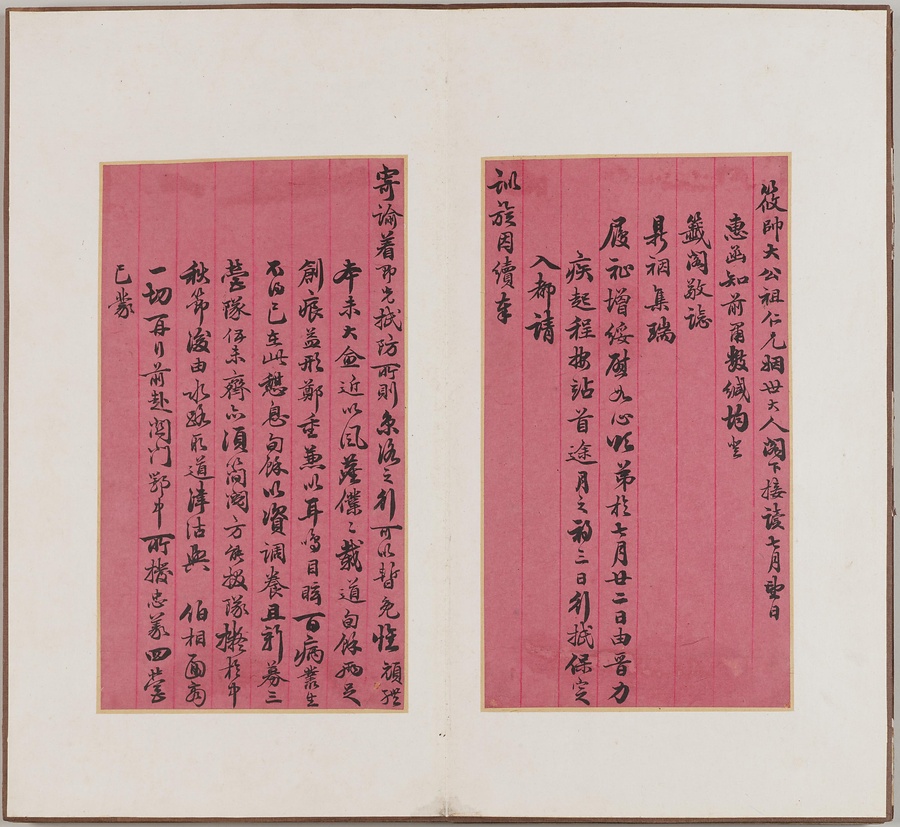 筱帥大公祖仁兄姻世大人閣下接讀七月望日
惠函知前肅數緘均登
籤閣敬諗
勛祺集瑞
履祉增綏慰如心頌弟於七月廿二日由晉力
疾起程按站首途月之初三日行抵保定
入都請
訓旋因續奉
寄諭着即先拔防所則京洛之行可以暫免惟頑軀
本未大愈近以風塵僕僕載道旬餘兩足
創痕益形鄭重兼以耳鳴目眩百病叢生
不得已在此憩息旬餘以資調養且新募三
營隊伍未齊亦須簡閱方能拔隊擬於中
秋節後由水路取道津沽與 伯相面商
一切再行前赴關門鄂中所撥忠義四營
已蒙